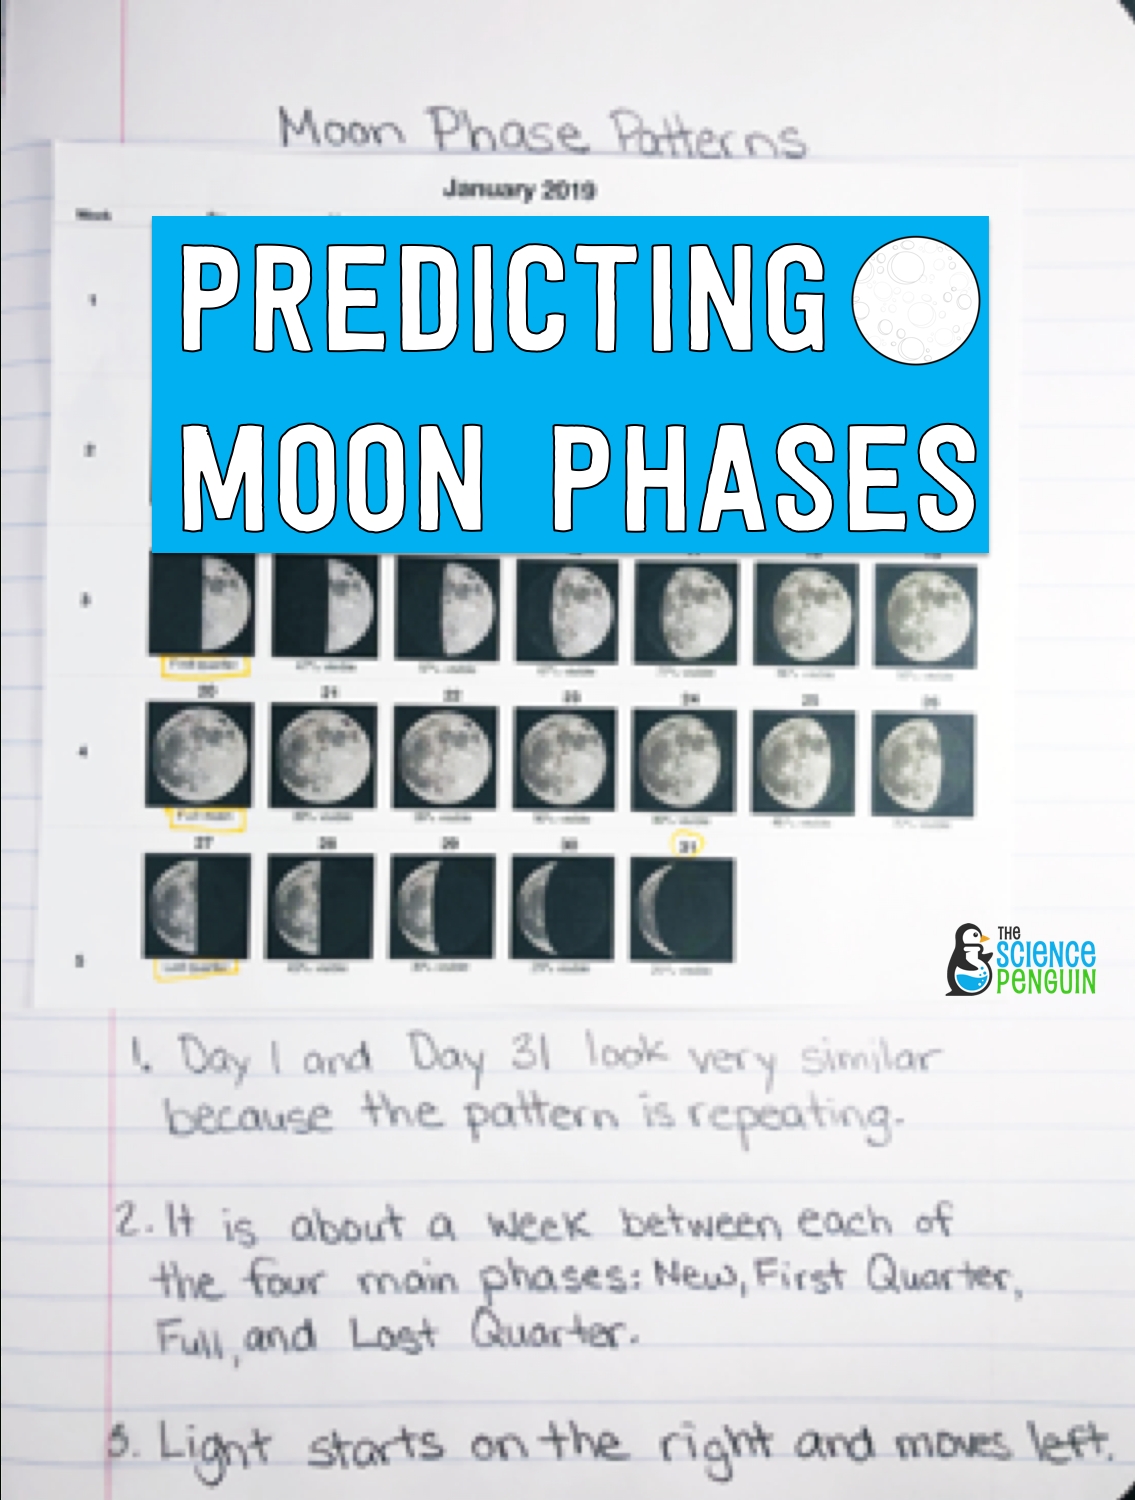 Moon Phase Patterns
January 2019
Week
1
PREDICTING
2
MOON PHASES
3
First quarter
20 21 22 23 24 25 26
4
Full moon
27 28 29 30 31
5
Last quarter
THE
SCIENCE
PENGUIN
1. Day 1 and Day 31 look very similar
because the pattern is repeating.
2. It is about a week between each of
the four main phases: New, First Quarter,
Full, and Last Quarter.
3. Light starts on the right and moves left.